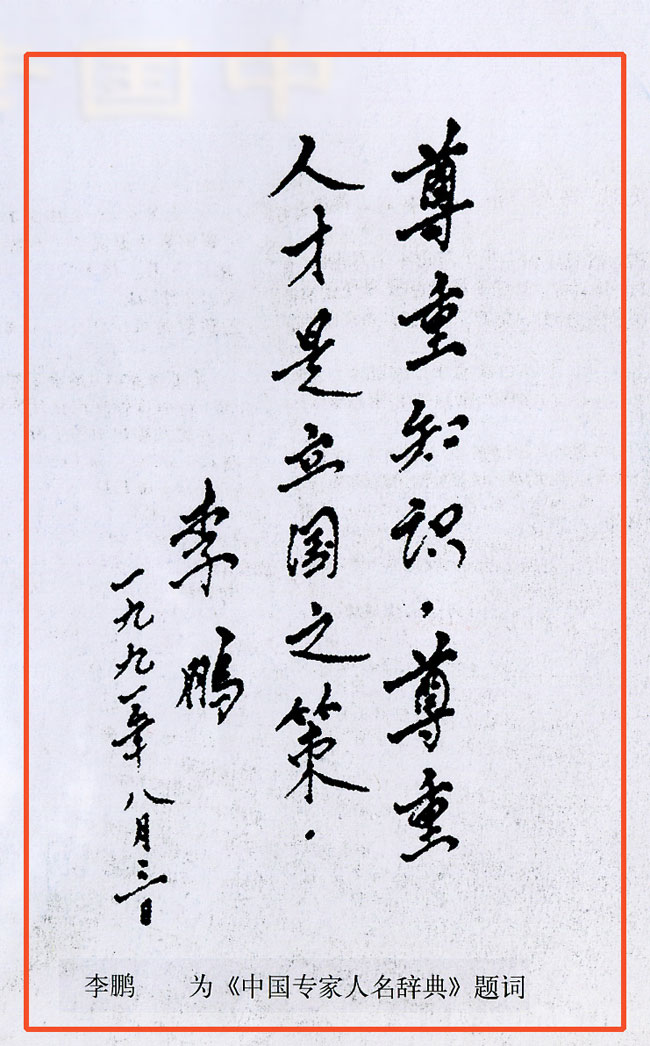 尊重知识，尊重
人才是立国之策。
李鹏
一九九一年八月三日
李鹏 为《中国专家人名辞典》题词